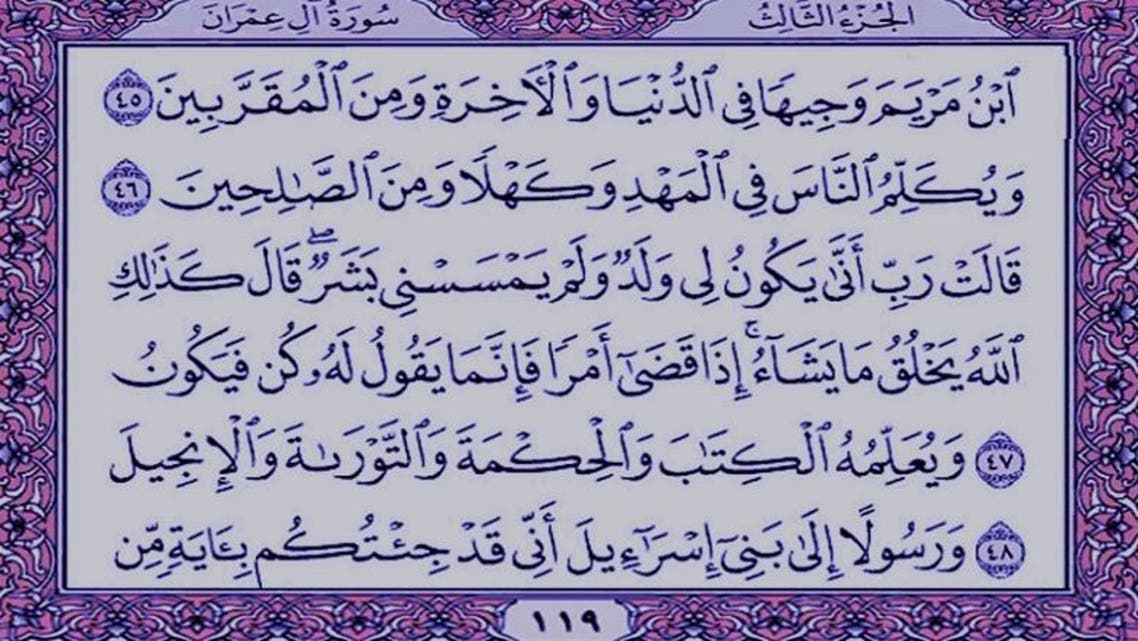 الجُزْءُ الثَّالِثُ
سُورَةُ آلِ عِمْرَانَ
ٱبْنُ مَرْيَمَ وَجِيهًا فِى ٱلدُّنْيَا وَٱلْأَخِرَةِ وَمِنَ ٱلْمُقَرَّبِينَ ٤٥
وَيُكَلِّمُ ٱلنَّاسَ فِى ٱلْمَهْدِ وَكَهْلًا وَمِنَ ٱلصَّٰلِحِينَ ٤٦
قَالَتْ رَبِّ أَنَّىٰ يَكُونُ لِى وَلَدٌ وَلَمْ يَمْسَسْنِى بَشَرٌ ۖ قَالَ كَذَٰلِكِ
ٱللَّهُ يَخْلُقُ مَا يَشَآءُ ۚ إِذَا قَضَىٰٓ أَمْرًا فَإِنَّمَا يَقُولُ لَهُۥ كُن فَيَكُونُ
٤٧ وَيُعَلِّمُهُ ٱلْكِتَٰبَ وَٱلْحِكْمَةَ وَٱلتَّوْرَىٰةَ وَٱلْإِنجِيلَ
٤٨ وَرَسُولًا إِلَىٰ بَنِىٓ إِسْرَٰٓءِيلَ أَنِّى قَدْ جِئْتُكُم بِـَٔايَةٍ مِّن
١١٩